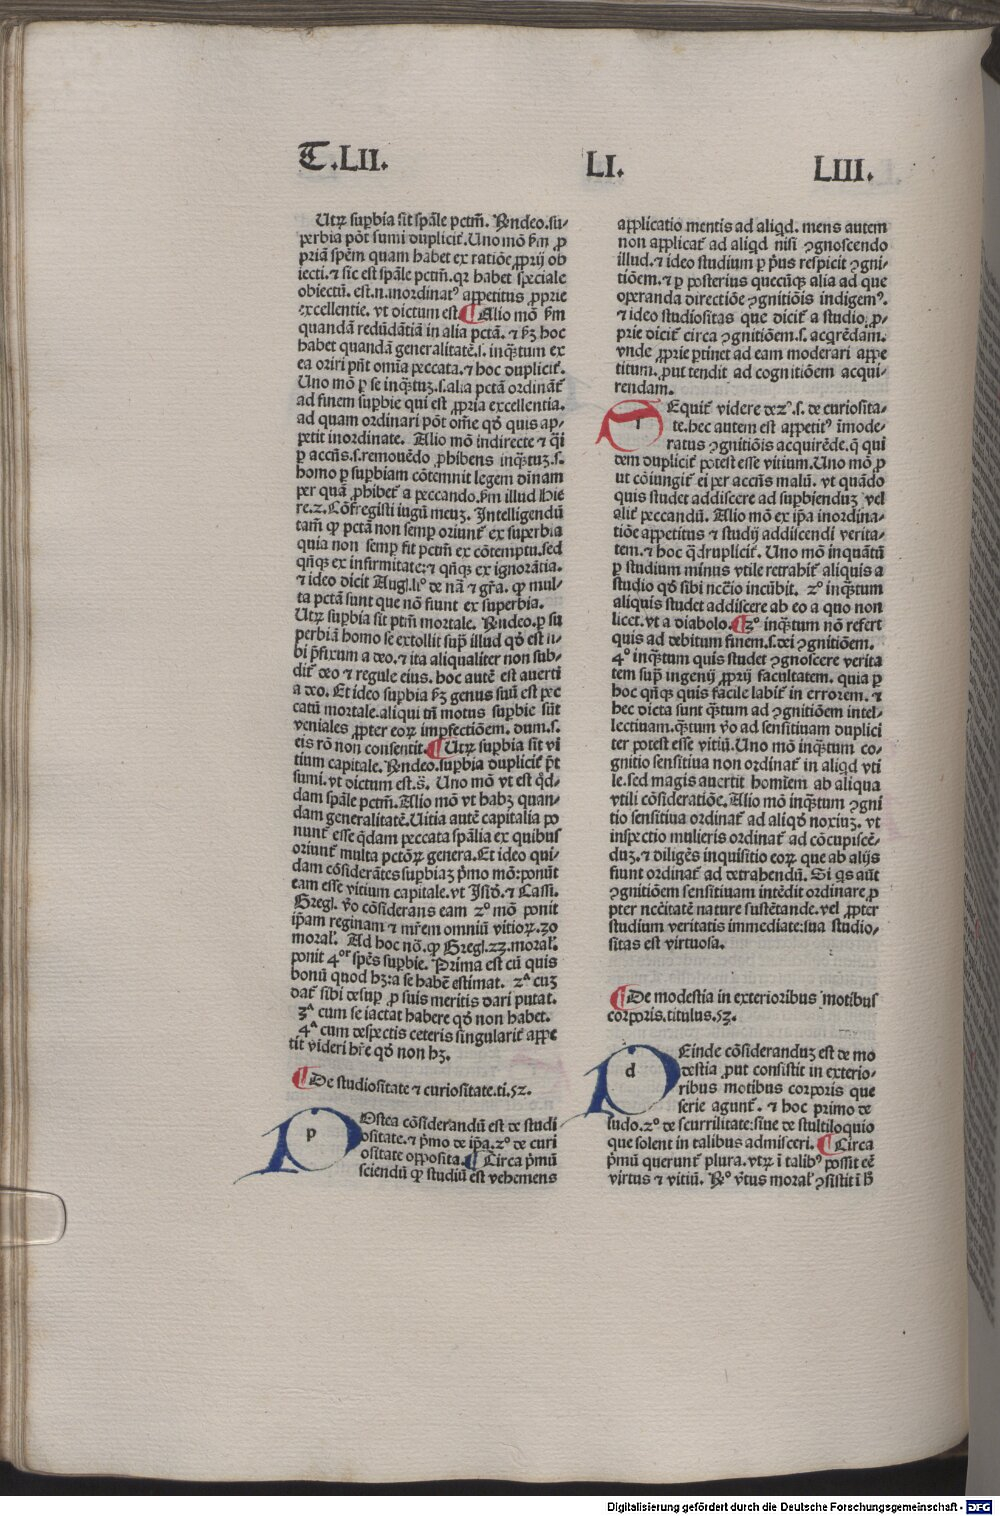 T.LII.
LI.
LIII.
Utꝝ suꝑbia sit spāle pctm̄. Rn̄deo.su-
ꝑerbia pōt sumi dupliciť. Uno mō ẜm ꝓ
priā spēm quam habet ex ratiōe ꝓprij ob
iecti.⁊ sic est spāle pctm̄.qꝛ habet speciale
obiectū. est.n.inordinatꝰ appetitus ꝓprie
excellentie. vt dictum est. ¶ Alio mō ẜm
quandā redūdātiā in alia pctā. ⁊ ẜꝫ hoc
habet quandā generalitatē.s. inqꝫtum ex
ea oriri pn̄t om̄ia peccata.⁊ hoc dupliciť.
Uno mō ꝑ se inqꝫtuꝫ.s.alia pctā ordinant̄
ad finem suꝑbie qui est ꝓpria excellentia.
ad quam ordinari pōt om̄e qđ quis ap-
petit inordinate. Alio mō indirecte ⁊ q̄si
ꝑ accn̄s.s.remouēdo ꝓhibens inqꝫtuꝫ.s.
homo ꝑ suꝑbiam cōtemnit legem diuinam
per quā ꝓhibet̄ a peccando.ẜm illud Hie
re.2. Cōfregisti iugū meuꝫ. Intelligendū
tam̄ ꝙ pctā non semꝑ oriunt̄ ex superbia
quia non semꝑ fit pctm̄ ex cōtemptu.sed
qn̄qꝫ ex infirmitate:⁊ qn̄qꝫ ex ignorātia.
⁊ ideo dicit Aug.li° de nā ⁊ gr̄a. ꝙ mul-
ta pctā sunt que nō fiunt ex superbia.
Utꝝ suꝑbia sit ptm̄ mortale. Rn̄deo.ꝑ su
perbiā homo se extollit suꝑ illud qđ est si-
bi p̄fixum a deo.⁊ ita aliqualiter non sub-
dit̄ deo ⁊ regule eius. hoc autē est auerti
a deo. Et ideo suꝑbia ẜꝫ genus suū est pec
catū mortale.aliqui tn̄ motus suꝑbie sūt
veniales ꝓpter eoꝝ imꝑfectiōem. dum.s.
eis rō non consentit. ¶ Utꝝ suꝑbia sit vi
tium capitale. Rn̄deo.suꝑbia dupliciť p̄t
sumi.vt dictum est.s̄. Uno mō vt est qđ-
dam spāle pctm̄.Alio mō vt habꝫ quan-
dam generalitatē.Uitia autē capitalia po
nunt̄ esse q̄dam peccata spālia ex quibus
oriunt̄ multa pctōꝝ genera.Et ideo qui-
dam cōsiderātes suꝑbiaꝫ p̄mo mō:ponūt
eam esse vitium capitale.vt Isiđ.⁊ Cassi.
Gregl. v̄o cōsiderans eam 2° mō ponit
ip̄am reginam ⁊ mr̄em omniū vitioꝝ.30
moral̄. Ad hoc nō.ꝙ Gregl.23.moral̄.
ponit 4°ʳ spēs suꝑbie. Prima est cū quis
bonū quod hꝫ:a se habē estimat. 2ᵃ cuꝫ
dat̄ sibi desuꝑ ꝓ suis meritis dari putat.
3ᵃ cum se iactat habere qđ non habet.
4ᵃ cum despectis ceteris singulariť appe
tit videri hr̄e qđ non hꝫ.
¶ De studiositate ⁊ curiositate.ti.52.
p Ostea cōsiderandū est de studi
ositate.⁊ p̄mo de ip̄a.2° de curi
ositate opposita. ¶ Circa p̄mū
sciendū ꝙ studiū est vehemens
applicatio mentis ad aliqđ. mens autem
non applicat̄ ad aliqđ nisi ꝯgnoscendo
illud.⁊ ideo studium ꝑ p̄us respicit ꝯgni-
tiōem.⁊ ꝑ posterius quecūqꝫ alia ad que
operanda directiōe ꝯgnitiōis indigemꝰ.
⁊ ideo studiositas que dicit̄ a studio, ꝓ-
prie dicit̄ circa ꝯgnitiōem.s. acq̄rēdam.
vnde ꝓprie ꝑtinet ad eam moderari appe
titum. ꝓut tendit ad cognitiōem acqui-
rendam.
s Equit̄ videre de 2°.s. de curiosita-
te.hec autem est appetitꝰ īmode-
ratus ꝯgnitiōis acquirēde.q̄ qui
dem dupliciť potest esse vitium.Uno mō ꝓ
ut cōiungit̄ ei per accn̄s malū. vt quādo
quis studet addiscere ad suꝑbienduꝫ vel
aliť peccandū. Alio mō ex ip̄a inordina-
tiōe appetitus ⁊ studij addiscendi verita-
tem.⁊ hoc q̄drupliciť. Uno mō inquātū
ꝑ studium minus vtile retrahit̄ aliquis a
studio qđ sibi nccīo incūbit. 2° inqꝫtum
aliquis studet addiscere ab eo a quo non
licet.vt a diabolo. ¶ 3° inqꝫtum nō refert
quis ad debitum finem.s.dei ꝯgnitiōem.
4° inqꝫtum quis studet ꝯgnoscere verita
tem suꝑ ingenij ꝓprij facultatem. quia ꝑ
hoc qn̄qꝫ quis facile labit̄ in errorem. ⁊
hec dicta sunt qꝫtum ad ꝯgnitiōem intel-
lectiuam.qꝫtum v̄o ad sensitiuam duplici
ter potest esse vitiū.Uno mō inqꝫtum co-
gnitio sensitiua non ordinat̄ in aliqđ vti
le.sed magis auertit homīem ab aliqua
vtili cōsideratiōe.Alio mō inqꝫtum ꝯgni
tio sensitiua ordinat̄ ad aliqđ noxiuꝫ. vt
inspectio mulieris ordinat̄ ad cōcupiscē-
duꝫ.⁊ diligēs inquisitio eoꝝ que ab alijs
fiunt ordinat̄ ad detrahendū. Si q̄s aūt
ꝯgnitiōem sensitiuam intēdit ordinare ꝓ
pter ncc̄itatē nature sustētande.vel ꝓpter
studium veritatis immediate:sua studio-
sitas est virtuosa.
¶ De modestia in exterioribus motibus
corporis.titulus.53.
d Einde cōsideranduꝫ est de mo
destia ꝓut consistit in exterio-
ribus motibus corporis que
serie agunt̄. ⁊ hoc primo de
ludo.2° de scurrilitate:siue de stultiloquio
que solent in talibus admisceri. ¶ Circa
p̄mū querunt̄ plura.vtꝝ ī talibꝰ possit eē
virtus ⁊ vitiū. R° v̄tus moral̄ ꝯsistit ī ħ
Digitalisierung gefördert durch die Deutsche Forschungsgemeinschaft - DFG